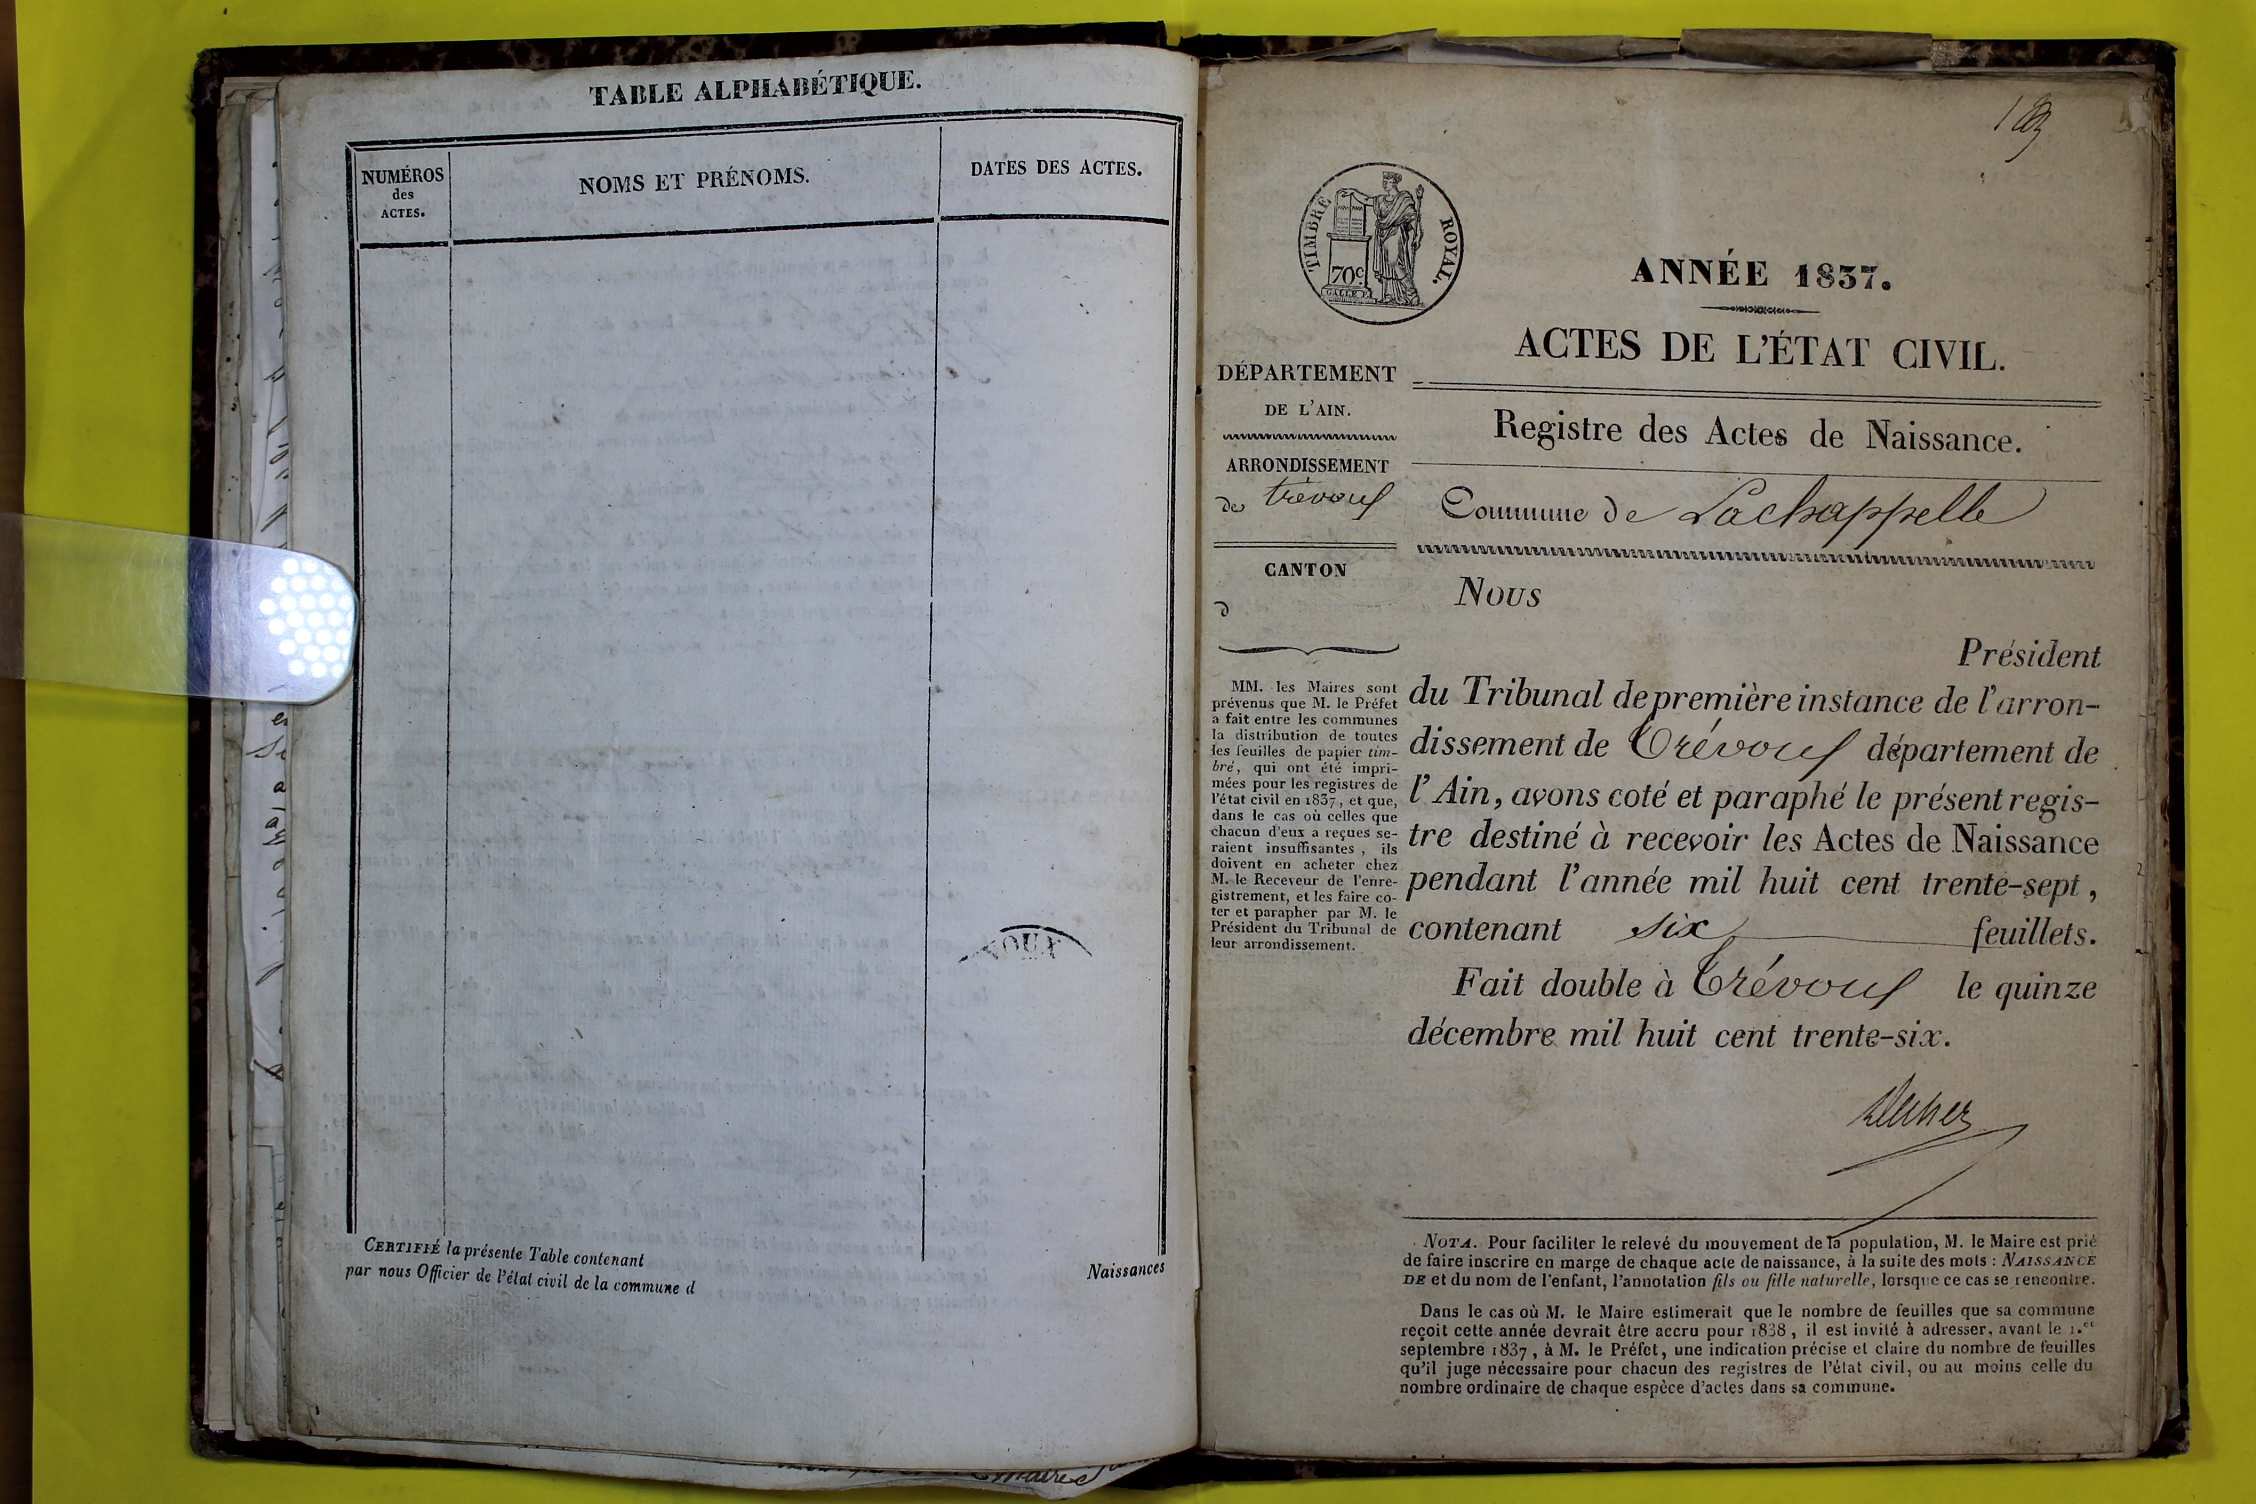 TABLE ALPHABÉTIQUE.
NUMÉROS
des
ACTES.
NOMS ET PRÉNOMS.
DATES DES ACTES.
VOUX
CERTIFIÉ la présente Table contenant
Naissances
par nous Officier de l'état civil de la commune d
TIMBRE ROYAL.
70c.
ANNÉE 1837.
ACTES DE L'ÉTAT CIVIL.
DÉPARTEMENT
DE L'AIN.
Registre des Actes de Naissance.
ARRONDISSEMENT
de trévoux
Commune de Lachappelle
CANTON
d
Nous
Président
du Tribunal de première instance de l'arron-
dissement de Trévoux département de
l'Ain, avons coté et paraphé le présent regis-
tre destiné à recevoir les Actes de Naissance
pendant l'année mil huit cent trente-sept,
contenant six feuillets.
Fait double à Trévoux le quinze
décembre mil huit cent trente-six.
MM. les Maires sont
prévenus que M. le Préfet
a fait entre les communes
la distribution de toutes
les feuilles de papier tim-
bré, qui ont été impri-
mées pour les registres de
l'état civil en 1837, et que,
dans le cas où celles que
chacun d'eux a reçues se-
raient insuffisantes, ils
doivent en acheter chez
M. le Receveur de l'enre-
gistrement, et les faire co-
ter et parapher par M. le
Président du Tribunal de
leur arrondissement.
NOTA. Pour faciliter le relevé du mouvement de la population, M. le Maire est prié
de faire inscrire en marge de chaque acte de naissance, à la suite des mots : NAISSANCE
DE et du nom de l'enfant, l'annotation fils ou fille naturelle, lorsque ce cas se rencontre.
Dans le cas où M. le Maire estimerait que le nombre de feuilles que sa commune
reçoit cette année devrait être accru pour 1838, il est invité à adresser, avant le 1.er
septembre 1837, à M. le Préfet, une indication précise et claire du nombre de feuilles
qu'il juge nécessaire pour chacun des registres de l'état civil, ou au moins celle du
nombre ordinaire de chaque espèce d'actes dans sa commune.